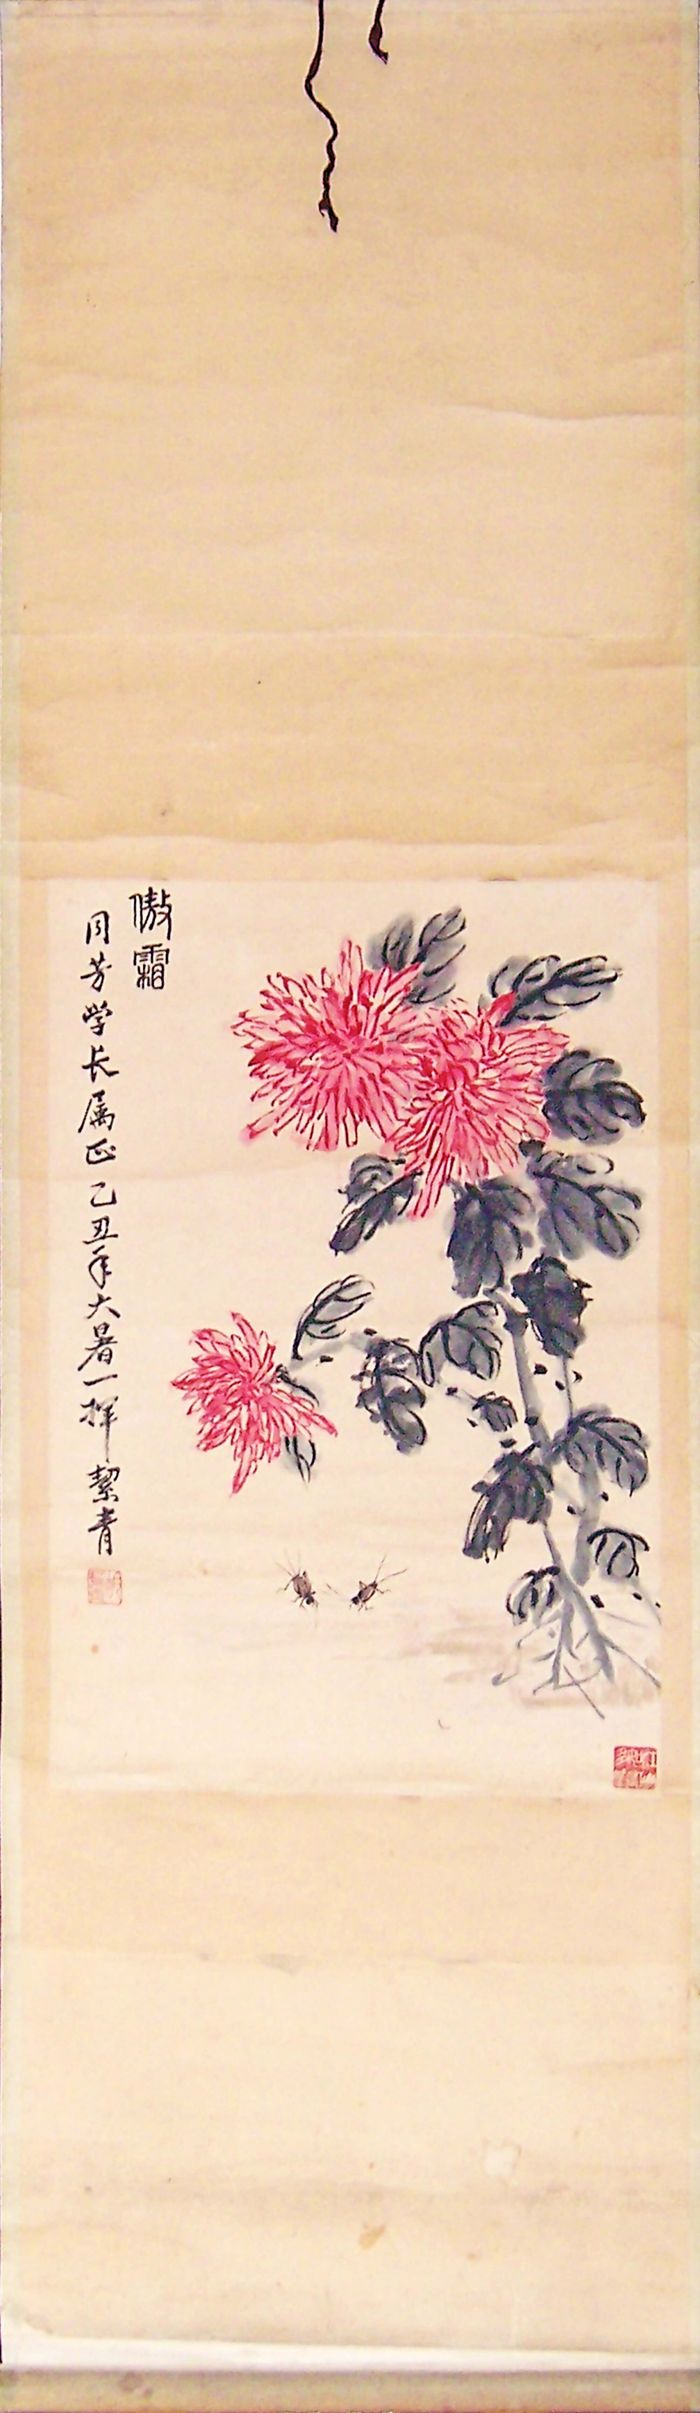 傲霜
同芳学长属正乙丑年大暑一挥絜青